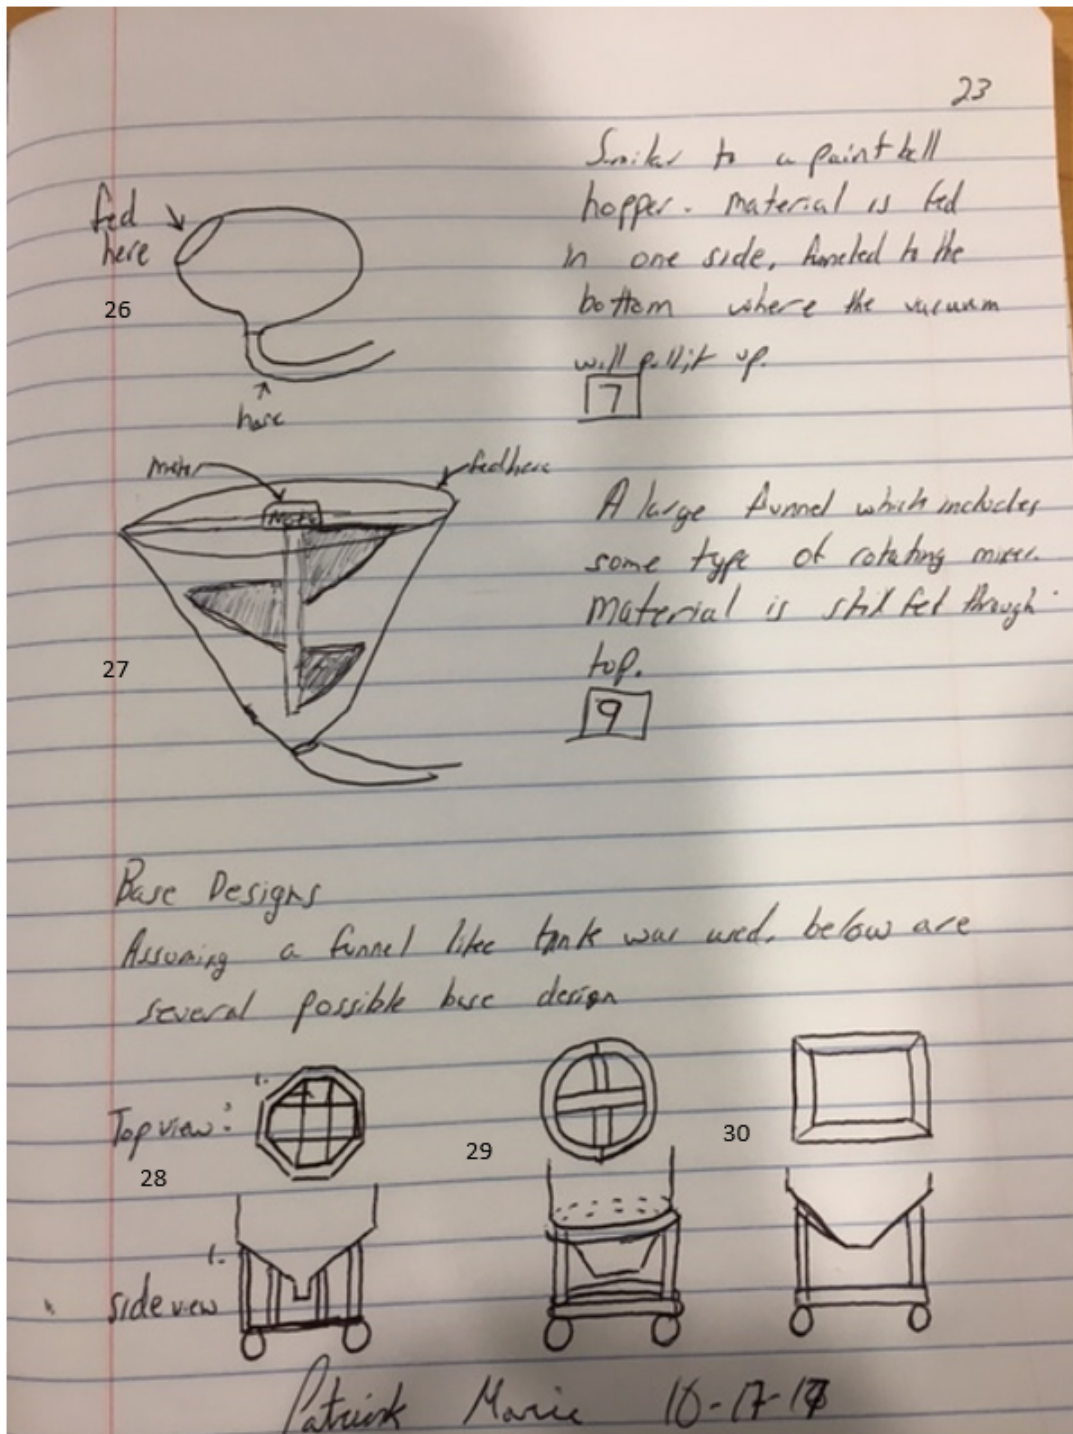 23
Similar to a paintball
hopper. Material is fed
in one side, funneled to the
bottom where the vacuum
will pull it up.
7
fed
here
26
hose
motor
feed here
Motor
27
A large funnel which includes
some type of rotating mixer.
Material is still fed through
top.
9
Base Designs
Assuming a funnel like tank was used, below are
several possible base design
1.
Top view:
28
29
30
1.
side view
Patrick 10-17-